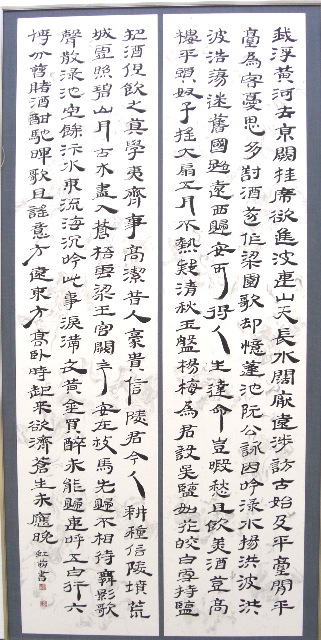 我浮黃河去京闕挂席欲進波連山天長水闊厭遠涉訪古始及平臺間平
臺為客憂思多對酒遂作梁園歌却憶蓬池阮公詠因吟淥水揚洪波洪
波浩蕩迷舊國路遠西歸安可得人生達命豈暇愁且飲美酒登高
樓平頭奴子搖大扇五月不熱疑清秋玉盤楊梅為君設吳鹽如花皎白雪持鹽
把酒但飲之莫學夷齊事高潔昔人豪貴信陵君今人耕種信陵墳荒
城虛照碧山月古木盡入蒼梧雲梁王宮闕今安在枚馬先歸不相待舞影歌
聲散淥池空餘汴水東流海沉吟此事淚滿衣黃金買醉未能歸連呼五白行六
博分曹賭酒酣馳暉歌且謠意方遠東方高臥時起來欲濟蒼生未應晚 虹書